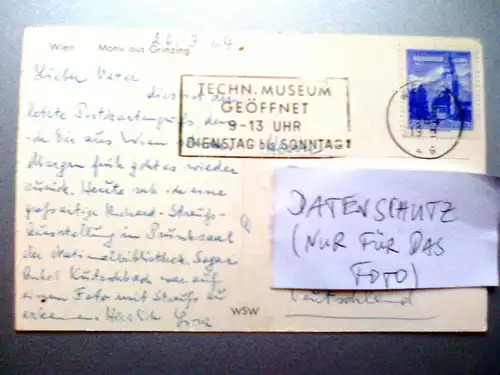 26. 7. 64
Wien Motiv aus Grinzing
Lieber Vater
dies ist der
letzte Postkartengruß, den
ich Dir aus Wien
Morgen früh geht es wieder
zurück. Heute sah ich eine
großartige Richard-Strauß-
Ausstellung im Prunksaal
der Nationalbibliothek. Sogar
Onkel Kutschbach war auf
einem Foto mit Strauß zu
erkennen. Herzlich
TECHN. MUSEUM
GEÖFFNET
9-13 UHR
DIENSTAG bis SONNTAG!
DATENSCHUTZ
(NUR FÜR DAS
FOTO)
Deutschland
WSW